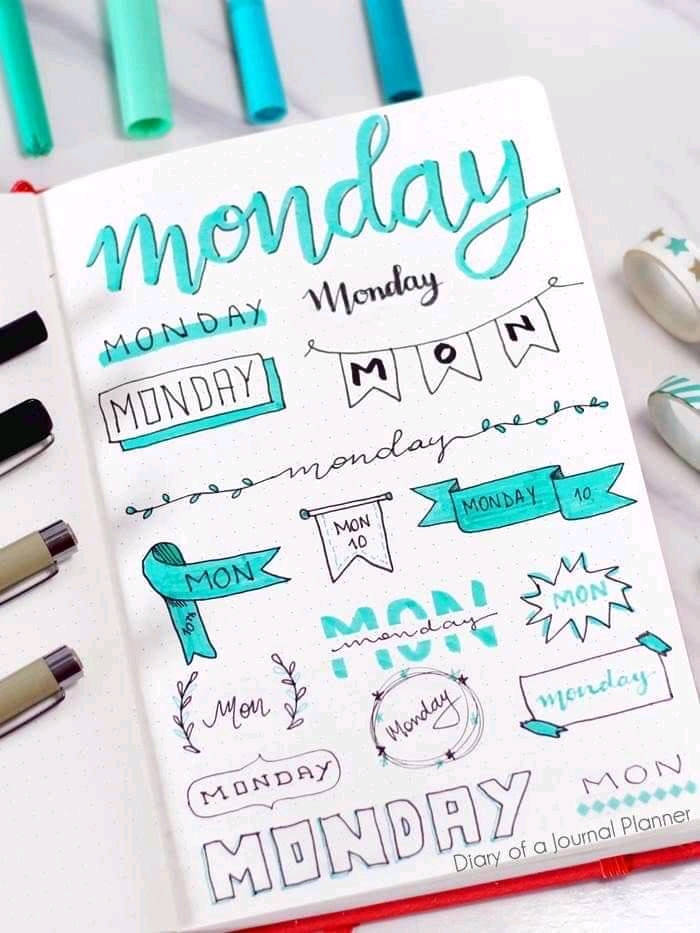 monday
Monday
MONDAY
MON
MONDAY
monday
MONDAY 10
MON
10
MON
MON
monday
MON
Mon
Monday
monday
MONDAY
MON
MONDAY
Diary of a Journal Planner